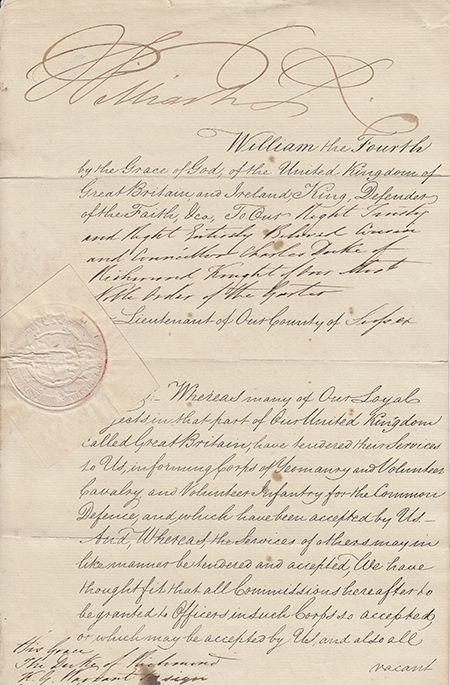 William R.
William the Fourth
by the Grace of God, of the United Kingdom of
Great Britain and Ireland, King, Defender
of the Faith, &ca, To Our Right Trusty
and Right Entirely Beloved Cousin
and Councillor Charles Duke of
Richmond Knight of Our Most
Noble Order of the Garter
Lieutenant of Our County of Sussex
Whereas many of Our Loyal
jects in that part of Our United Kingdom
called Great Britain, have tendered their Services
to Us, in forming Corps of Yeomanry and Volunteer
Cavalry and Volunteer Infantry for the Common
Defence, and which have been accepted by Us.—
And, Whereas, the Services of others may in
like manner be tendered and accepted, We have
thought fit that all Commissions hereafter to
be granted to Officers in such Corps so accepted
or which may be accepted by Us, and also all
vacant
His Grace
The Duke of Richmond
K.G. Warrant sign